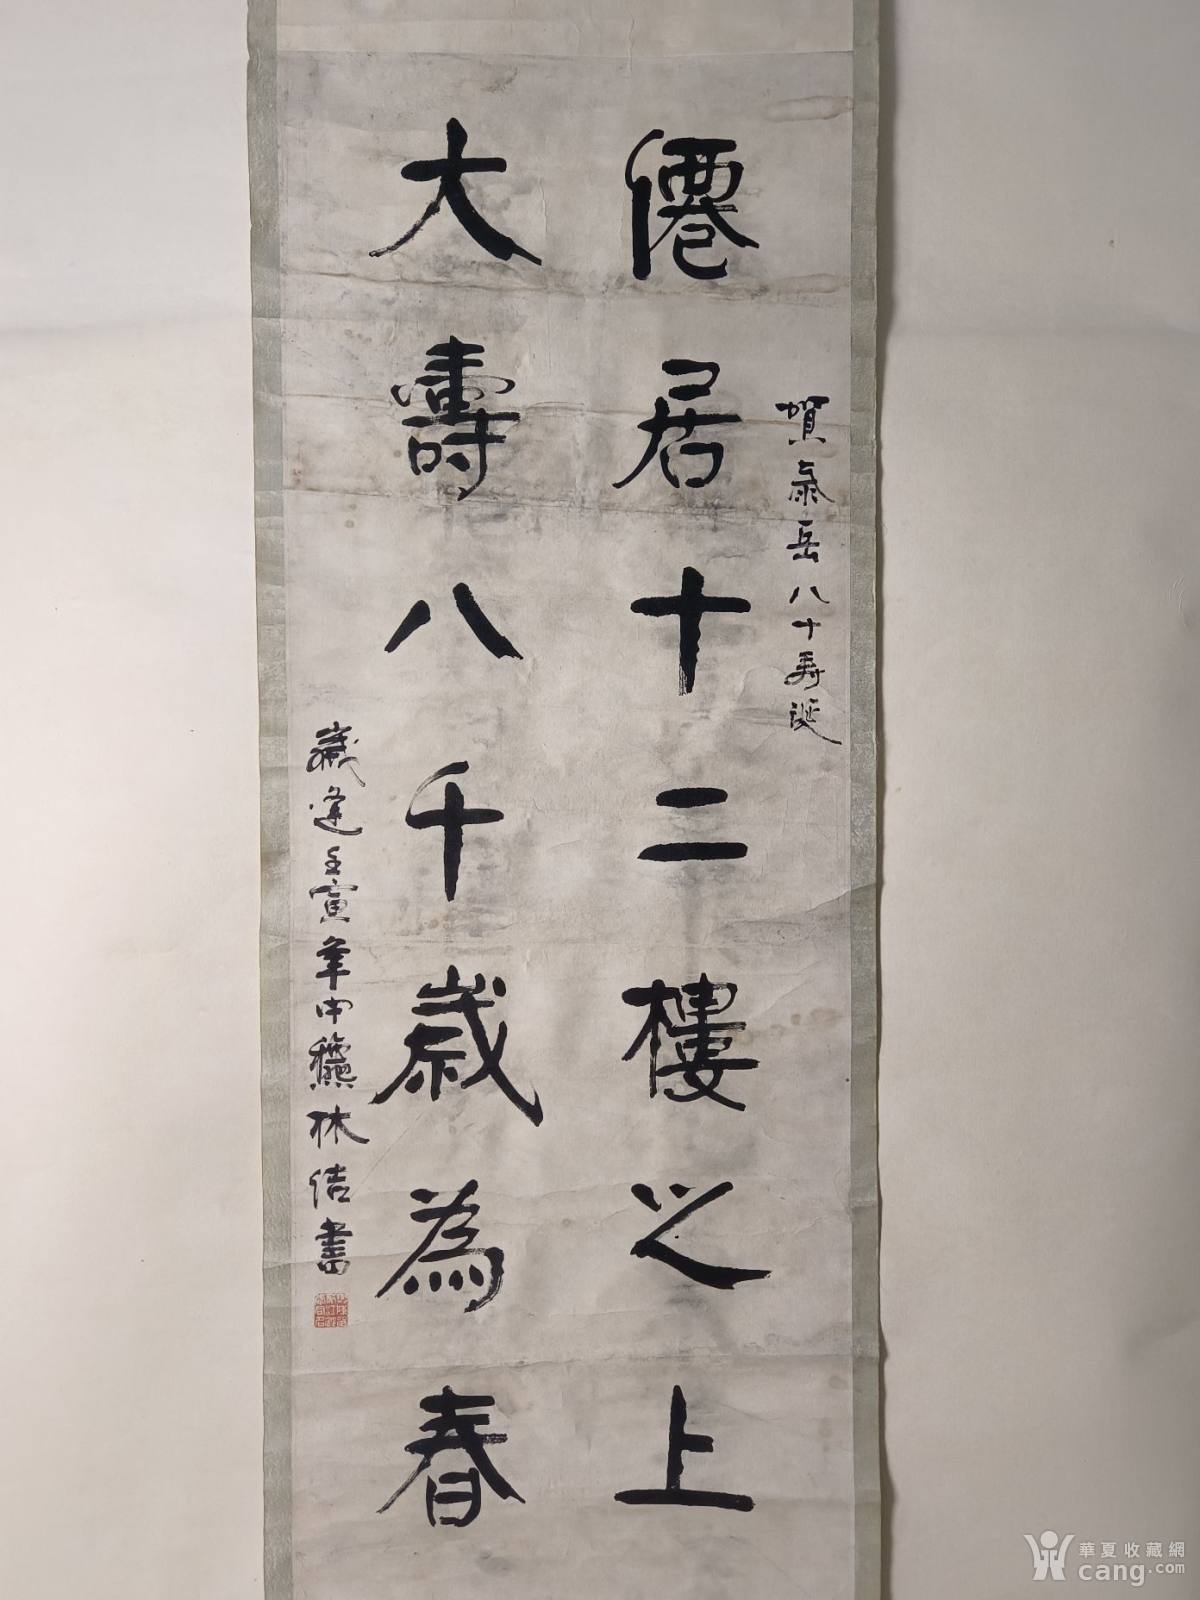 賀泰岳八十寿诞
僊居十二樓之上
大壽八千歲為春
歲逢壬寅年中龝林佶書
華夏收藏網
cang.com